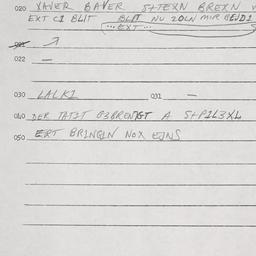 020 XAVER BAVER S+TEXN BREXN
EXT C1 BLIT BLIT NU 20LN MIR BEJD1
EXT
021
022 —
030 LALKI 031 —
040 DER TATIT 03BRENGT A S+P1L3XL
050 ERT BRINGIN NOX EJNS